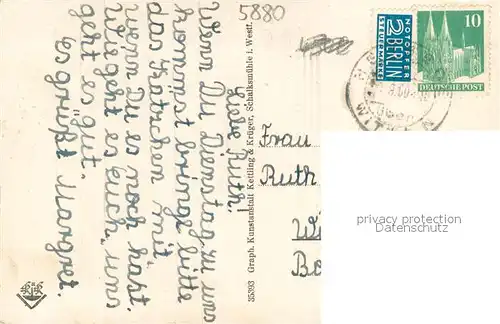 5880
Liebe Ruth!
Wenn Du Dienstag zu uns
kommst bringe bitte
das Jäckchen mit,
wenn Du es noch hast.
Wie geht es euch, uns
geht es gut.
Es grüßt Margret.
35393 Graph. Kunstanstalt Kettling & Krüger, Schalksmühle i. Westf.
K&K
NOTOPFER
2 BERLIN
STEUERMARKE
10
DEUTSCHE POST
Frau
Ruth
privacy protection
oldthing.com